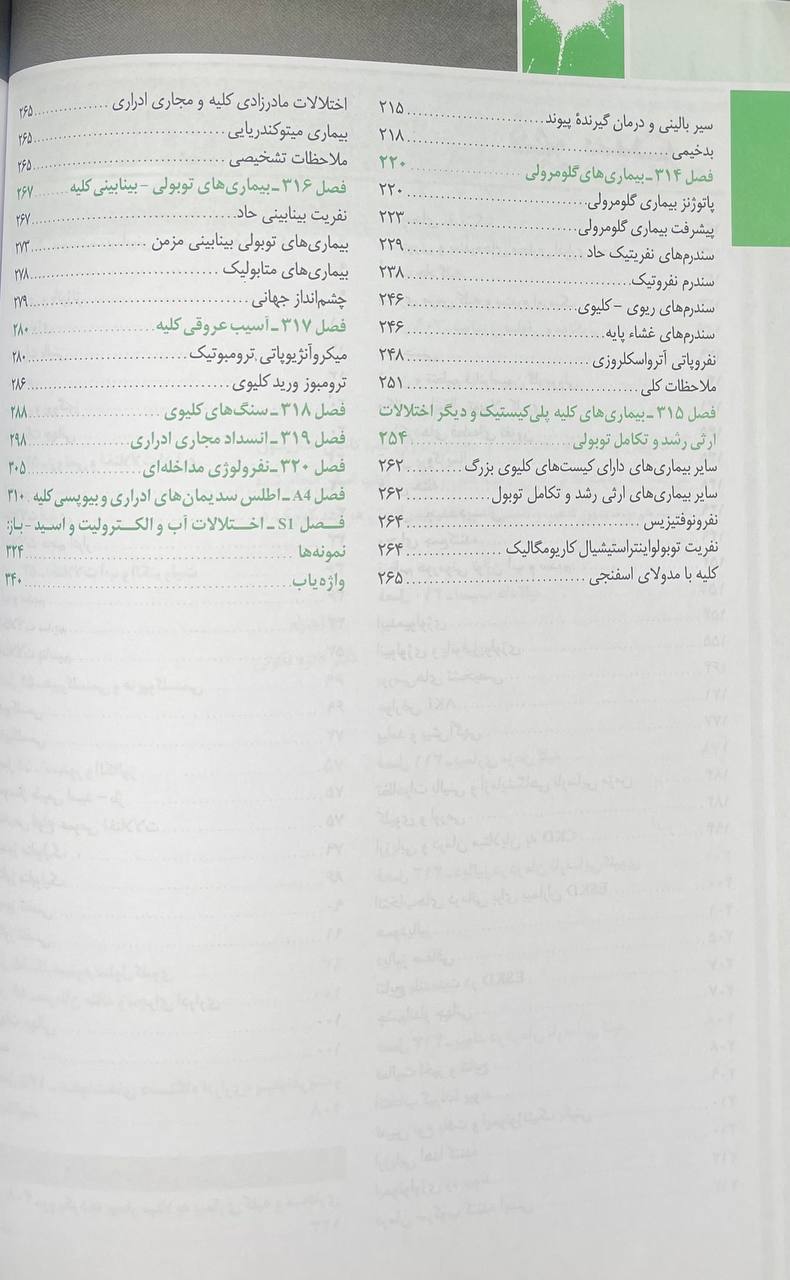 سیر بالینی و درمان گیرندهٔ پیوند ........ ۲۱۵
بدخیمی ........ ۲۱۸
فصل ۳۱۴ـ بیماری‌های گلومرولی ........ ۲۲۰
پاتوژنز بیماری گلومرولی ........ ۲۲۰
پیشرفت بیماری گلومرولی ........ ۲۲۳
سندرم‌های نفریتیک حاد ........ ۲۲۹
سندرم نفروتیک ........ ۲۳۸
سندرم‌های ریوی - کلیوی ........ ۲۴۶
سندرم‌های غشاء پایه ........ ۲۴۶
نفروپاتی آترواسکلروزی ........ ۲۴۸
ملاحظات کلی ........ ۲۵۱
فصل ۳۱۵ـ بیماری‌های کلیه پلی‌کیستیک و دیگر اختلالات
ارثی رشد و تکامل توبولی ........ ۲۵۴
سایر بیماری‌های دارای کیست‌های کلیوی بزرگ ........ ۲۶۲
سایر بیماری‌های ارثی رشد و تکامل توبول ........ ۲۶۲
نفرونوفتیزیس ........ ۲۶۴
نفریت توبولواینتراستیشیال کاریومگالیک ........ ۲۶۴
کلیه با مدولای اسفنجی ........ ۲۶۵
اختلالات مادرزادی کلیه و مجاری ادراری ........ ۲۶۵
بیماری میتوکندریایی ........ ۲۶۵
ملاحظات تشخیصی ........ ۲۶۵
فصل ۳۱۶ـ بیماری‌های توبولی - بینابینی کلیه ........ ۲۶۷
نفریت بینابینی حاد ........ ۲۶۷
بیماری‌های توبولی بینابینی مزمن ........ ۲۷۳
بیماری‌های متابولیک ........ ۲۷۸
چشم‌انداز جهانی ........ ۲۷۹
فصل ۳۱۷ـ آسیب عروقی کلیه ........ ۲۸۰
میکروآنژیوپاتی ترومبوتیک ........ ۲۸۰
ترومبوز ورید کلیوی ........ ۲۸۶
فصل ۳۱۸ـ سنگ‌های کلیوی ........ ۲۸۸
فصل ۳۱۹ـ انسداد مجاری ادراری ........ ۲۹۸
فصل ۳۲۰ـ نفرولوژی مداخله‌ای ........ ۳۰۵
فصل A4ـ اطلس سدیمان‌های ادراری و بیوپسی کلیه ۳۱۰
فصل S1ـ اختلالات آب و الکترولیت و اسید - باز:
نمونه‌ها ........ ۳۲۴
واژه‌یاب ........ ۳۴۰